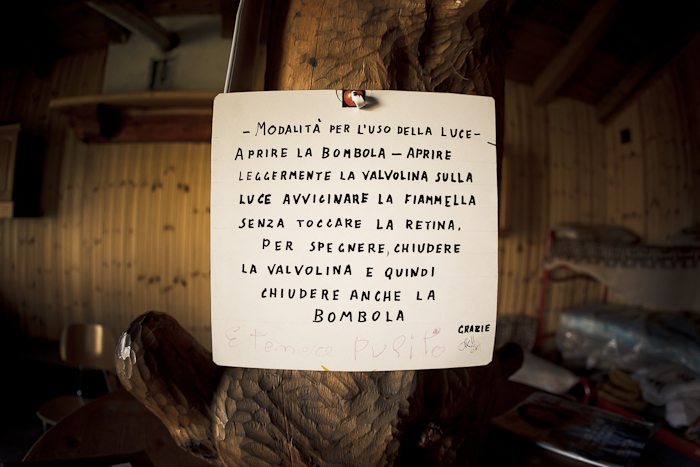 - MODALITÀ PER L'USO DELLA LUCE-
APRIRE LA BOMBOLA - APRIRE
LEGGERMENTE LA VALVOLINA SULLA
LUCE AVVICINARE LA FIAMMELLA
SENZA TOCCARE LA RETINA.
PER SPEGNERE, CHIUDERE
LA VALVOLINA E QUINDI
CHIUDERE ANCHE LA
BOMBOLA
GRAZIE
E tenere pulito